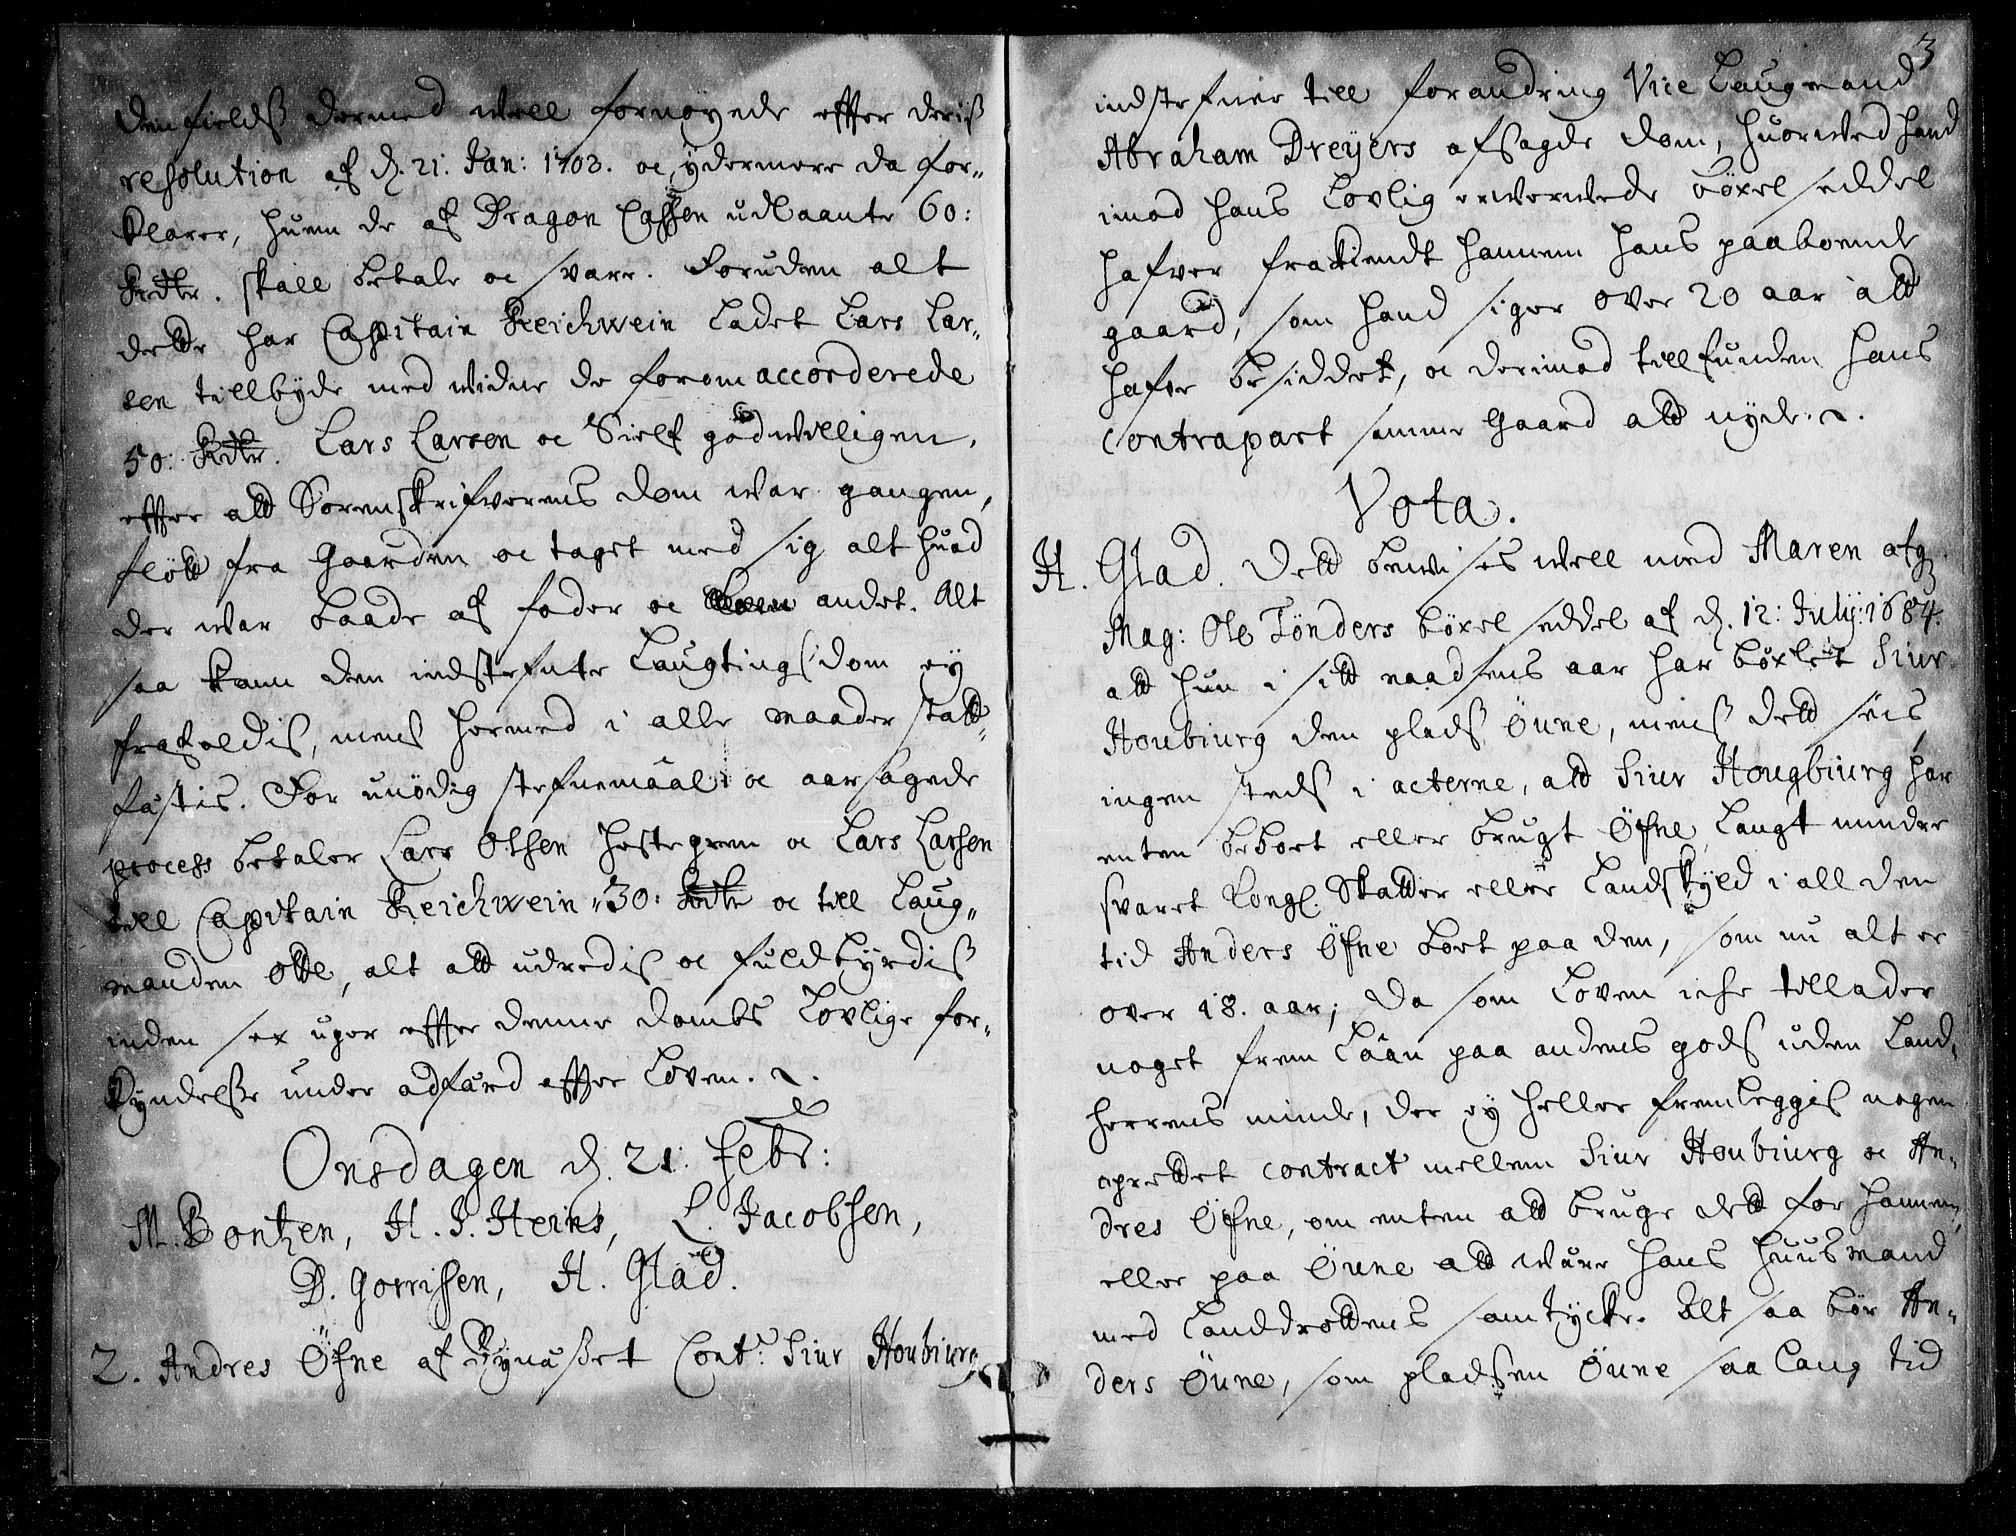 denfields dermed well fornøyede effter deris
resolution af d. 21: Jan: 1703. oc ydermere da for-
klarer, huem de af Dragon Cassen udlaante 60:
Rdlr. skall betale oc svare. Foruden alt
dette har Capitain Reichwein ladet Lars Lar-
sen tillbyde med widne de forom accorderede
50: Rdlr. Lars Larsen oc Sielf godwilligen,
effter att Sorenskrifverens dom war gangen,
flött fra Gaarden oc taget med sig alt huad
der war baade af foder oc andet. Alt
saa kand den indstefnte Laugtings dom ey
frafaldis, mens hermed i alle maader statt-
fæstis. For unödig stefnemaal oc aarsagede
process betaler Lars Olsen Hestegrem oc Lars Larsen
till Capitain Reichwein 30: Rdlr oc till Laug-
manden otte, alt att udredis oc fuldbyrdis
inden sex uger effter denne dombs lovlige for-
kyndelse under adfærd effter Loven.
Onsdagen d. 21. Febr:
M. Bontzen, H. J. Heins, L. Jacobsen,
D. Gorrissen, H. Glad.
2. Andres Öfne af Cont: Siur Houbiurg
3
indstefner till forandring Vice Laugmand
Abraham Dreÿers afsagde dom, huorwed hand
imod hans lovlig erwerwede böxel seddel
hafver frakiendt hannem hans paaboende
gaard, som hand siger over 20 aar att
hafve besiddet, oc derimod tillfunden hans
contrapart samme Gaard att nyde.
Vota.
H. Glad. Dett bewises well med Maren afg:
Mag: Ole Tönders böxel seddel af d. 12: Julÿ: 1684.
att hun i sitt naadsens aar har böxlet Siur
Houbiurg den plads Öune, mens dett sees
ingen steds i acterne, att Siur Hougbiurg har
enten beboet eller brugt Öfne, langt mindre
svaret Kongl. Skatter eller Landskÿld i all den
tid Anders Öfne boet paa den, som nu alt er
over 18. aar; Da som Loven iche tillader
noget frem Laan paa andens gods uden Land-
herrens minde, der ey heller fremleggis nogen
oprettet contract mellem Siur Houbiurg oc An-
dres Öfne, om enten att bruge dett for hannem,
eller paa Öune att wære hans Huusmand
med Landdrottens samtÿcke. Alt saa bör An-
ders Öune, som pladsen Öune saa lang tid